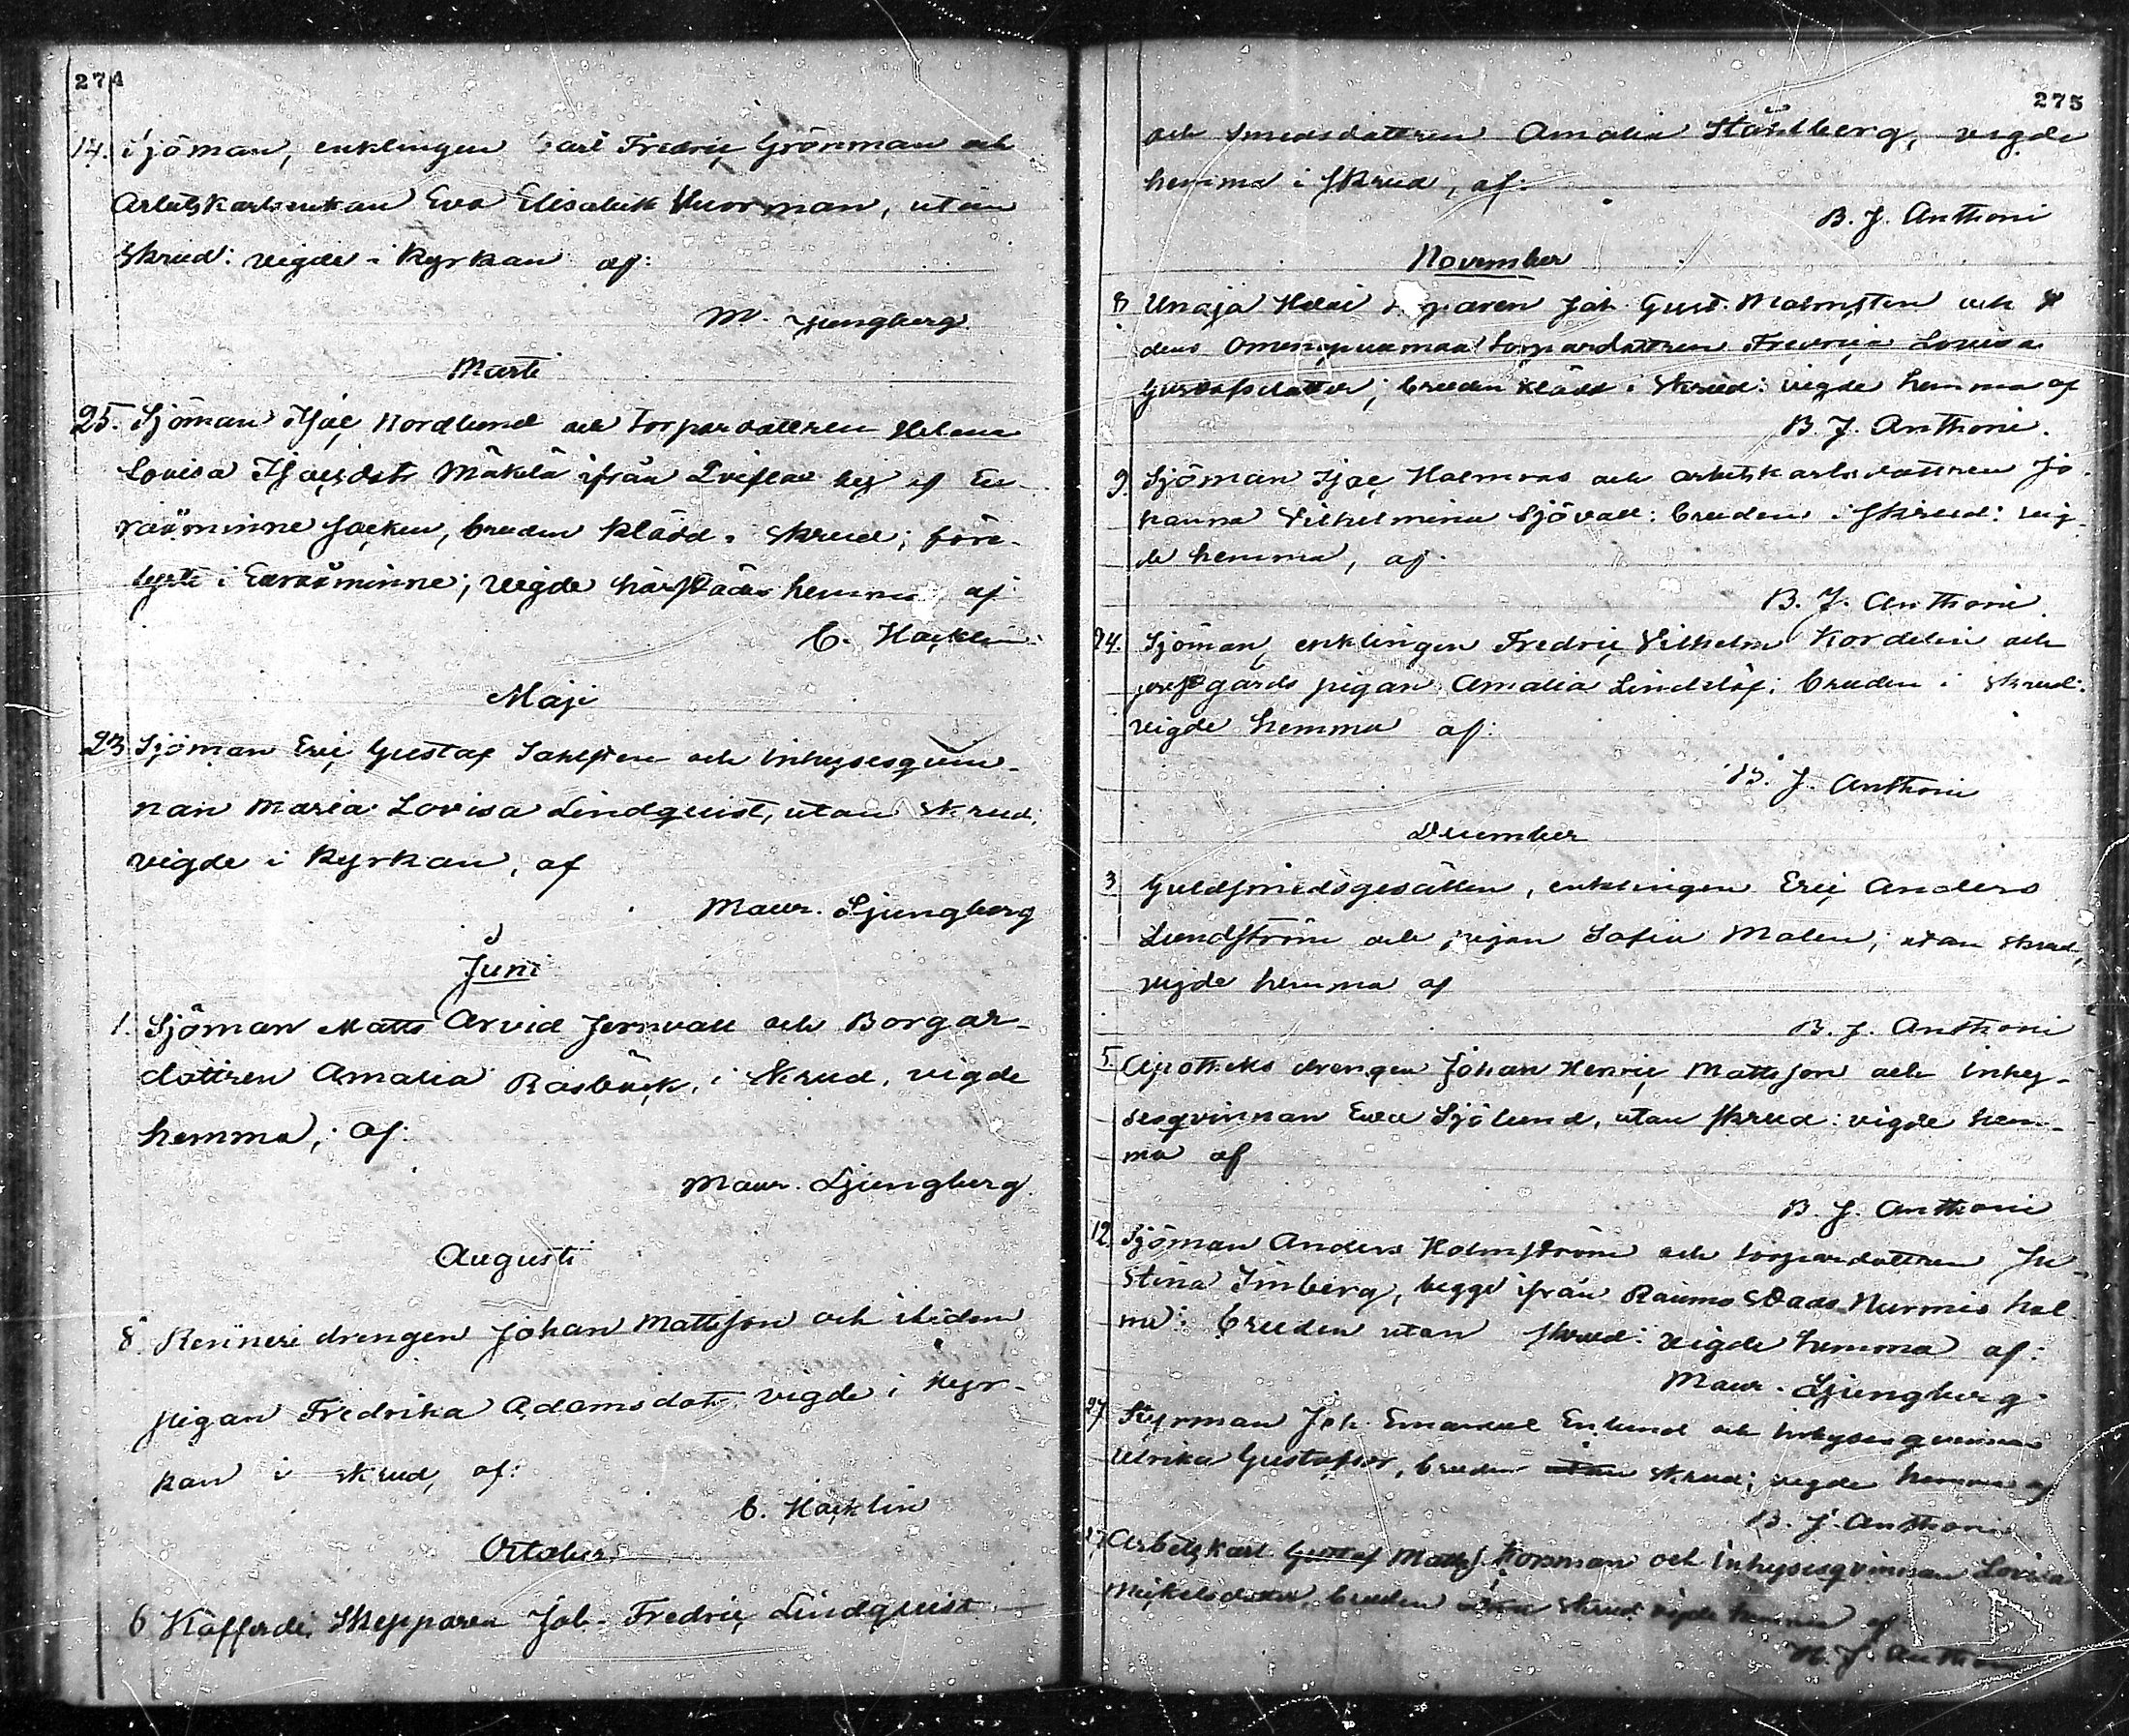 274
14. Sjöman, enklingen Carl Fredric Grönman och
Arbetskarlsenkan Eva Elisabeth Nuorman, utan
skrud: vigde i Kyrkan af:
M. Ljungberg
Marti
25. Sjöman Isac Nordlund och torpardottren Helena
Lovisa Isacsdotr Mäkelä ifrån Lviflax by af Eu-
raåminne socken, bruden klädd i skrud; före-
lyste i Euraåminne; vigde härstädes hemma af
C. Hacklin
Maji
23 Sjöman Eric Gustaf Sahlsten och Inhysesqvin-
nan Maria Lovisa Lindquist, utan skrud;
vigde i Kyrkan, af
Maur. Ljungberg
Juni
1. Sjöman Matts Arvid Jernvall och Borgar-
dottren Amalia Rosbäck, i skrud, vigde
hemma; af:
Maur. Ljungberg
Augusti
8 drengen Johan Mattsson och ibidem
pigan Fredrika Adamsdotr vigde i Kyr-
kan i skrud, af:
C. Hacklin
October
6 Kofferdi Skepparen Joh. Fredric Lindquist
275
och smedsdottren Amalia Ståhlberg, vigde
hemma i skrud, af:
B. J. Anthoni
November
8 Unaja Joh. Gust. Malmsten och
torpardottren Fredrica Lovisa
Gustafsdotter; bruden klädd i skrud: vigde hemma af
B. J. Anthoni.
9. Sjöman Isac Holmroos och arbetskarlsdottren Jo-
hanna Vilhelmina Sjövall: bruden i skrud: vig-
de hemma, af
B. J. Anthoni
24. Sjöman, enklingen Fredric Vilhelm Kordelin och
prestgårds pigan Amalia Lindelöf: bruden i skrud:
vigde hemma af:
B. J. Anthoni
December
3 Guldsmedsgesällen, enklingen Eric Anders
Lundström och pigan Sofia Malen; utan skrud,
vigde hemma af
B. J. Anthoni
5. Apotheks drengen Johan Henric Mattsson och Inhy-
sesqvinnan Eva Sjölund, utan skrud: vigde hem-
ma af
B. J. Anthoni
12. Sjöman Anders Holmström och torpardottren Ju-
stina Imberg, begge ifrån Raumo Stads Nurmis hol-
me: bruden utan skrud: vigde hemma af:
Maur. Ljungberg
27 Styrman Joh. Emanuel Enlund och Inhysesqvinnan
Ulrika Gustafsdr, bruden utan skrud; vigde hemma af
B. J. Anthoni
27 Arbetskarl Gustaf Mattss. Korsman och Inhysesqvinnan Lovisa
Mickelsdotter, bruden utan skrud vigde hemma af
B. J. Antho